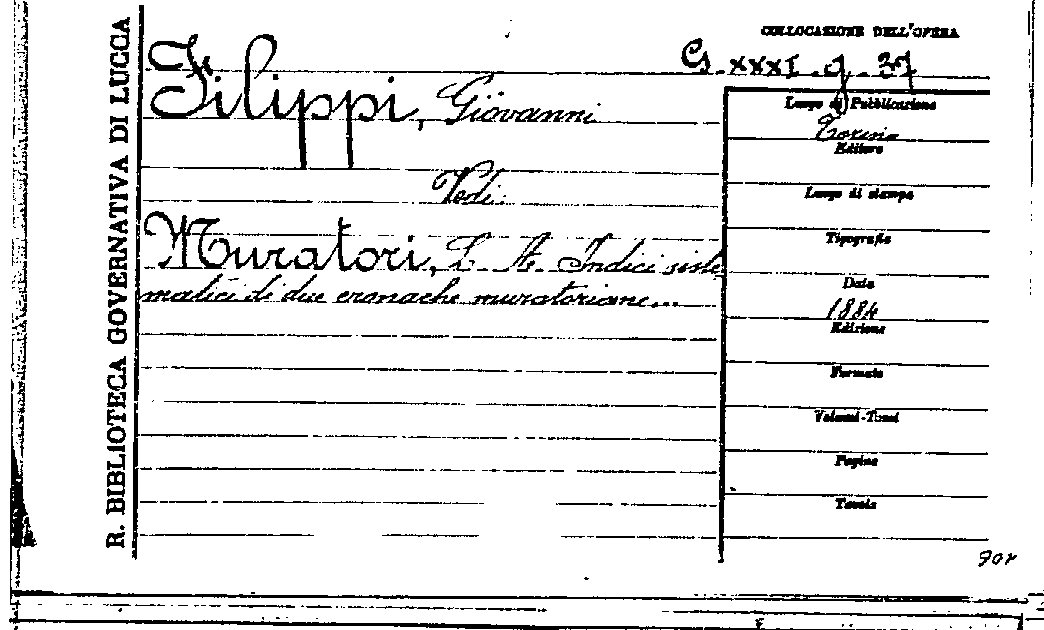 R. BIBLIOTECA GOVERNATIVA DI LUCCA
COLLOCAZIONE DELL'OPERA
G. XXXI. g. 37
Filippi, Giovanni
Vedi:
Muratori, L. A. Indici siste
matici di due cronache muratoriane...
Luogo di Pubblicazione
Torino
Editore
Luogo di stampa
Tipografia
Data
1884
Edizione
Formato
Volumi-Tomi
Pagine
Tavole